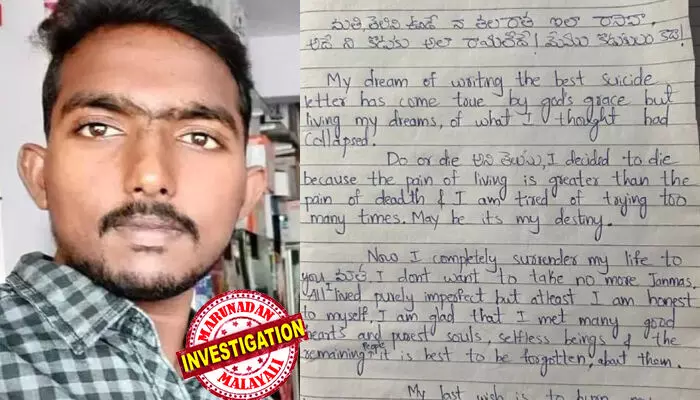 అదే నీ కొడుకు అలా
My dream of writing the best suicide
letter has come true by god's grace but
living my dreams, of what I thought had
collapsed.
Do or die అని I decided to die
because the pain of living is greater than the
pain of deadth & I am tired of trying too
many times. May be its my destiny.
Now I completely surrender my life to
you I dont want to take no more Janmas.
All I lived purely imperfect but atleast I am honest
to myself, I am glad that I met many good
hearts and purest souls, selfless beings & the
remaining people it is best to be forgotten, about them.
My last wish is to burn my
MARUNADAN
INVESTIGATION
MALAYALI